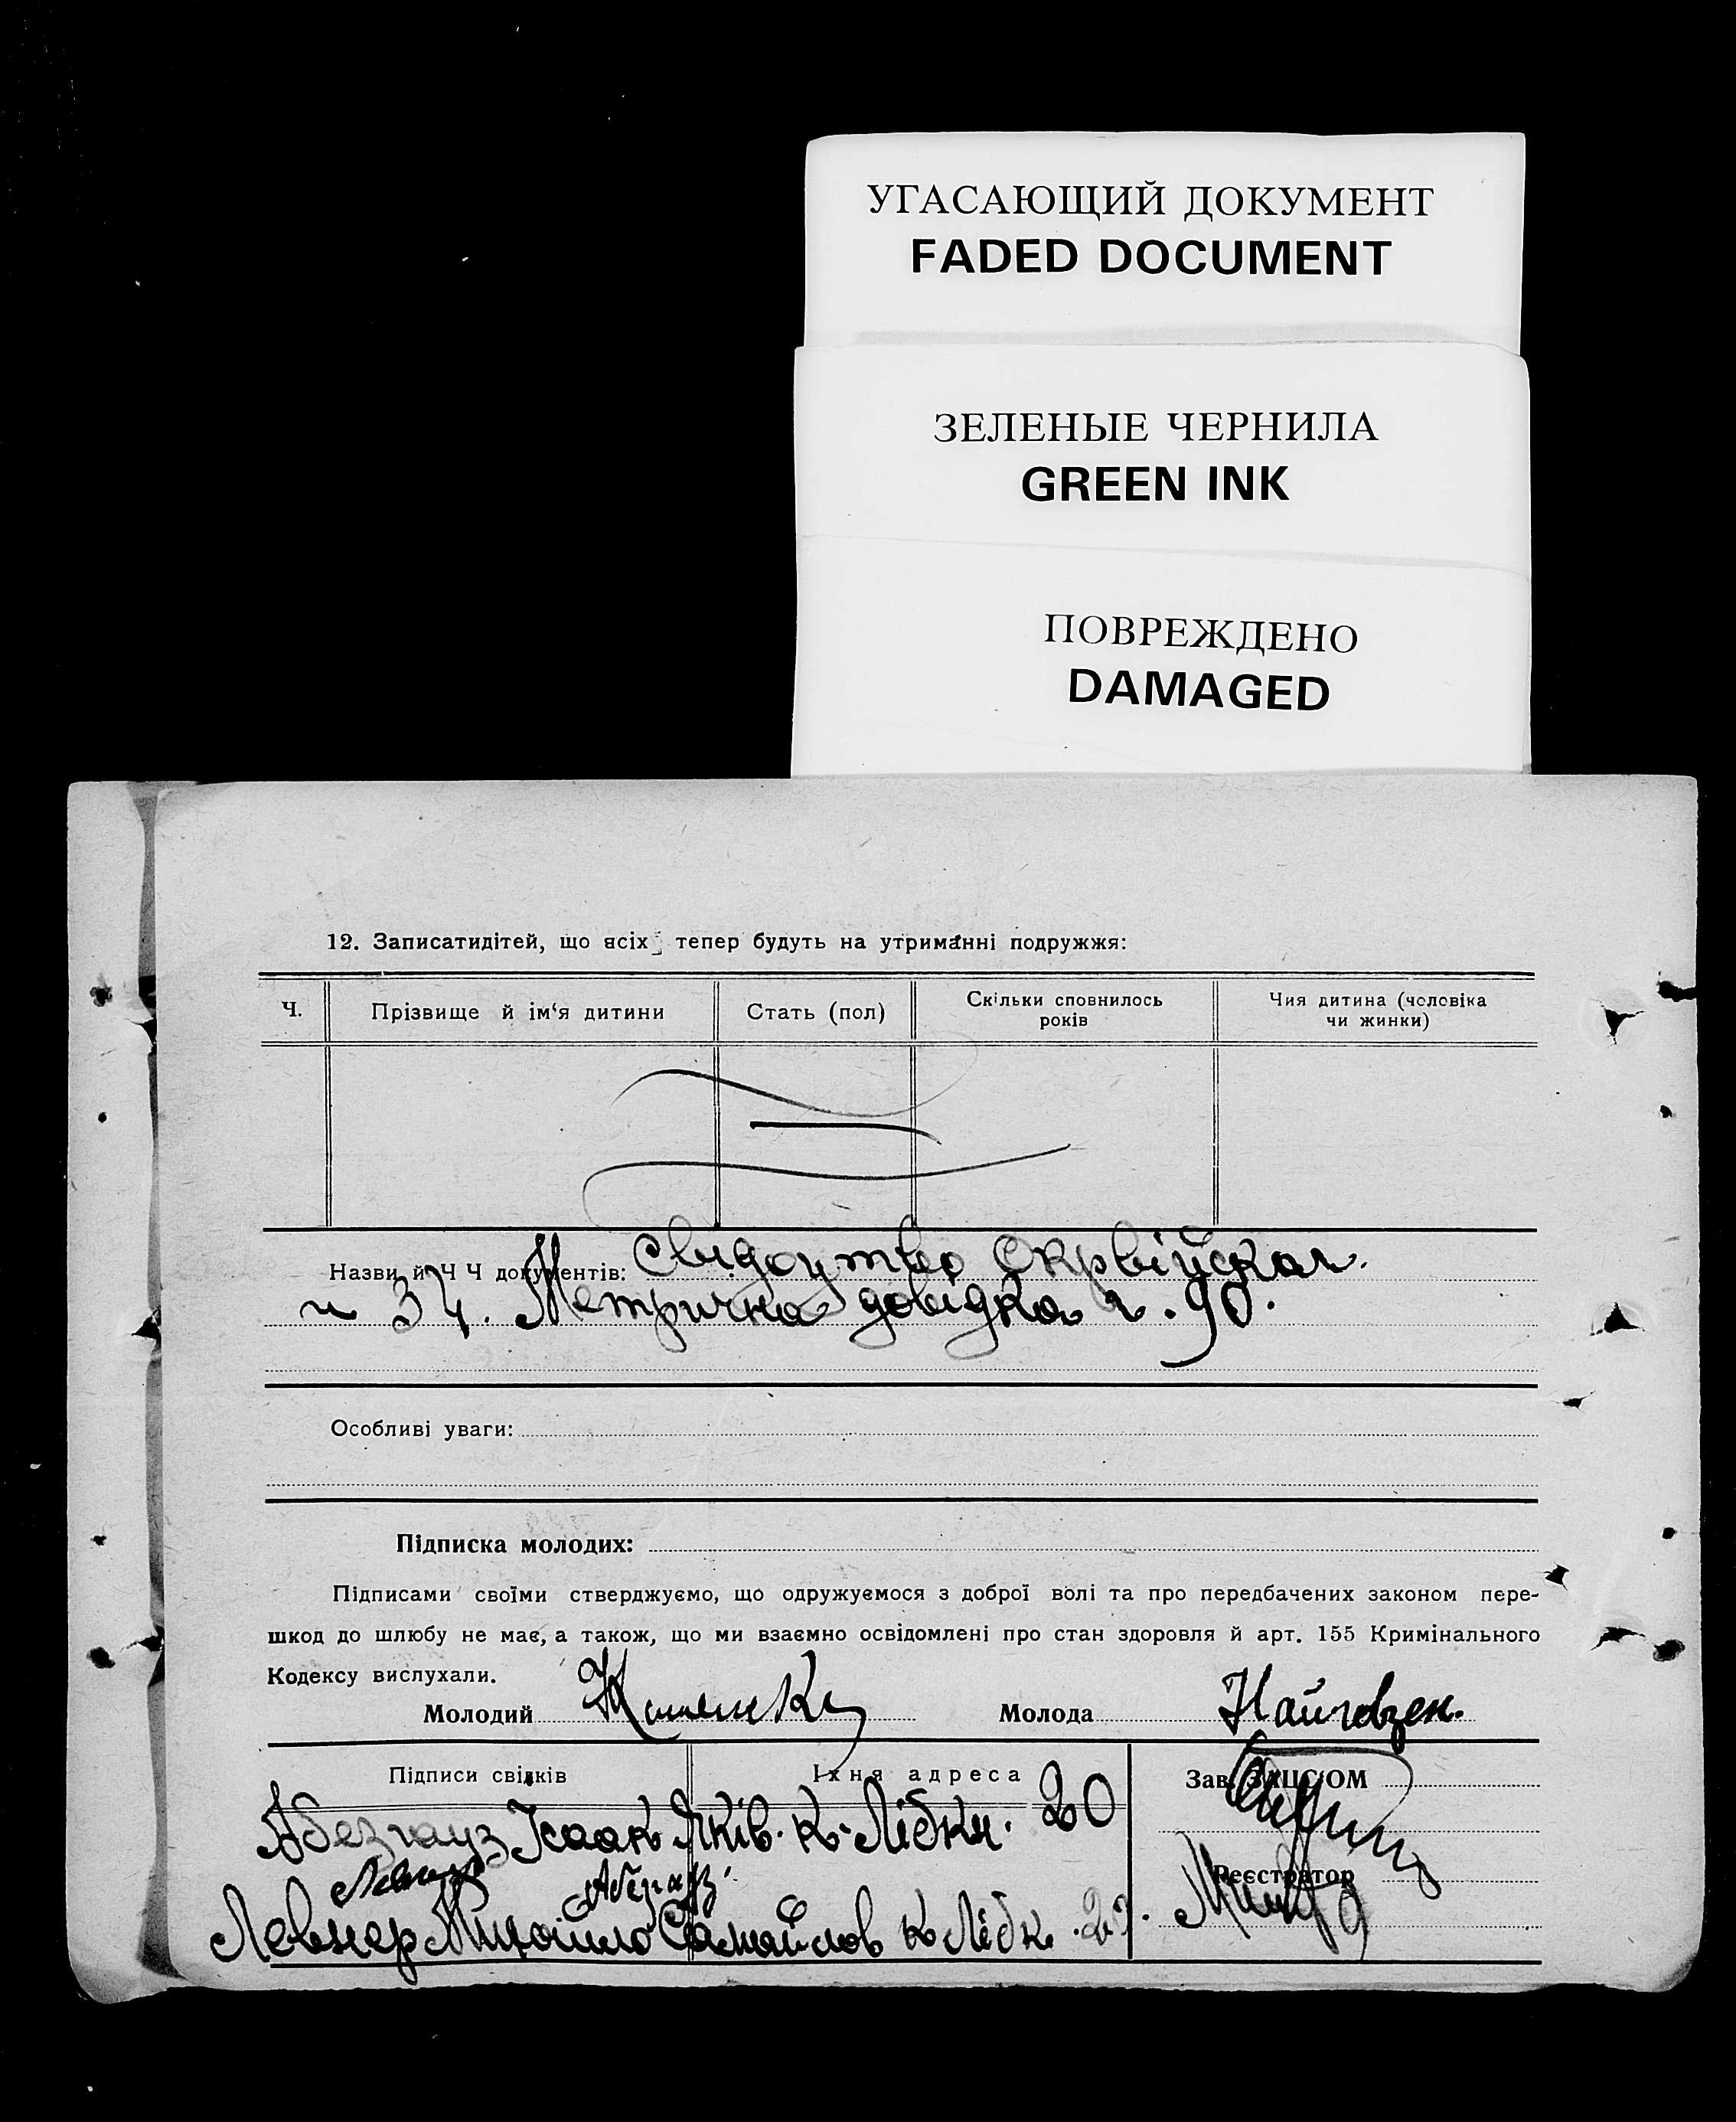 УГАСАЮЩИЙ ДОКУМЕНТ
FADED DOCUMENT
ЗЕЛЕНЫЕ ЧЕРНИЛА
GREEN INK
ПОВРЕЖДЕНО
DAMAGED
12. Записатидітей, що всіх тепер будуть на утриманні подружжя:
Ч.
Прізвище й ім‘я дитини
Стать (пол)
Скільки сповнилось
років
Чия дитина (человіка
чи жинки)
Назви й Ч Ч документів: Свидоцтво
34. Метрична довідка ч. 90.
Особливі уваги:
Підписка молодих:
Підписами своїми стверджуємо, що одружуємося з доброї волі та про передбачених законом пере-
шкод до шлюбу не має, а також, що ми взаємно освідомлені про стан здоровля й арт. 155 Кримінального
Кодексу вислухали.
Молодий
Молода
Підписи свідків
Їхня адреса
Зав. ЗАЦСОМ
Абезгауз Ісаак Яків. К. Лібкн. 20
Реєстратор
Левнер Самойлов К Лібк.